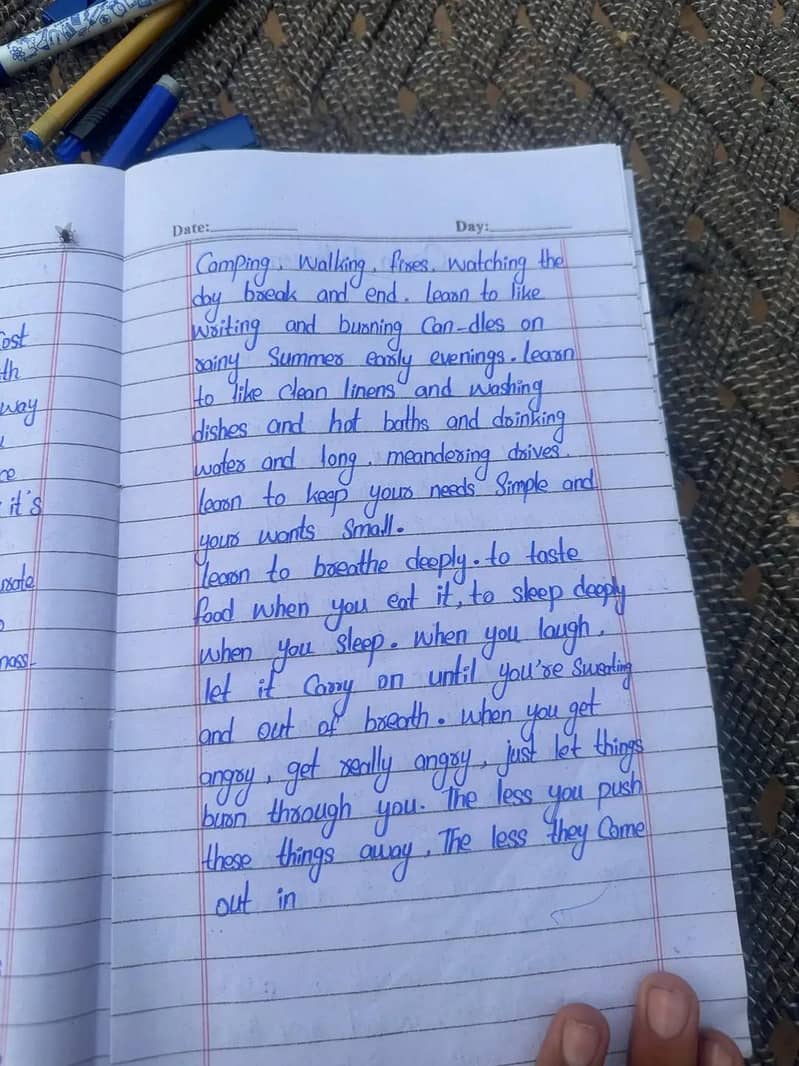 Cost
th
way
ce
it's
Date:
Day:
Camping, Walking, fires, watching the
day break and end. learn to like
writing and burning Can-dles on
rainy Summer early evenings. learn
to like clean linens and washing
dishes and hot baths and drinking
water and long, meandering drives.
learn to keep your needs Simple and
your wants Small.
learn to breathe deeply. to taste
food when you eat it, to sleep deeply
when you sleep. when you laugh,
let it Carry on until you're Sweating
and out of breath. when you get
angry, get really angry, just let things
burn through you. The less you push
these things away, The less they Come
out in